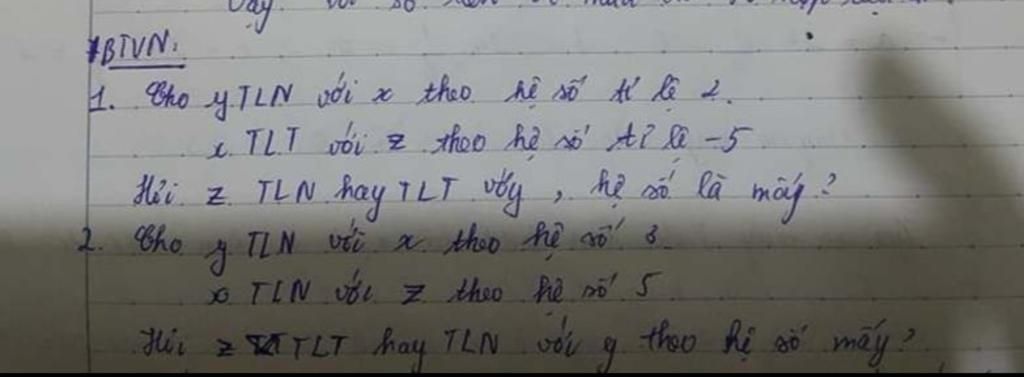 BTVN:
1. Cho y TLN với x theo hệ số tỉ lệ 2.
x TLT với z theo hệ số tỉ lệ -5
Hỏi z TLN hay TLT với y, hệ số là mấy?
2. Cho y TLN với x theo hệ số 3
x TLN với z theo hệ số 5
Hỏi z TLT hay TLN với y theo hệ số mấy?